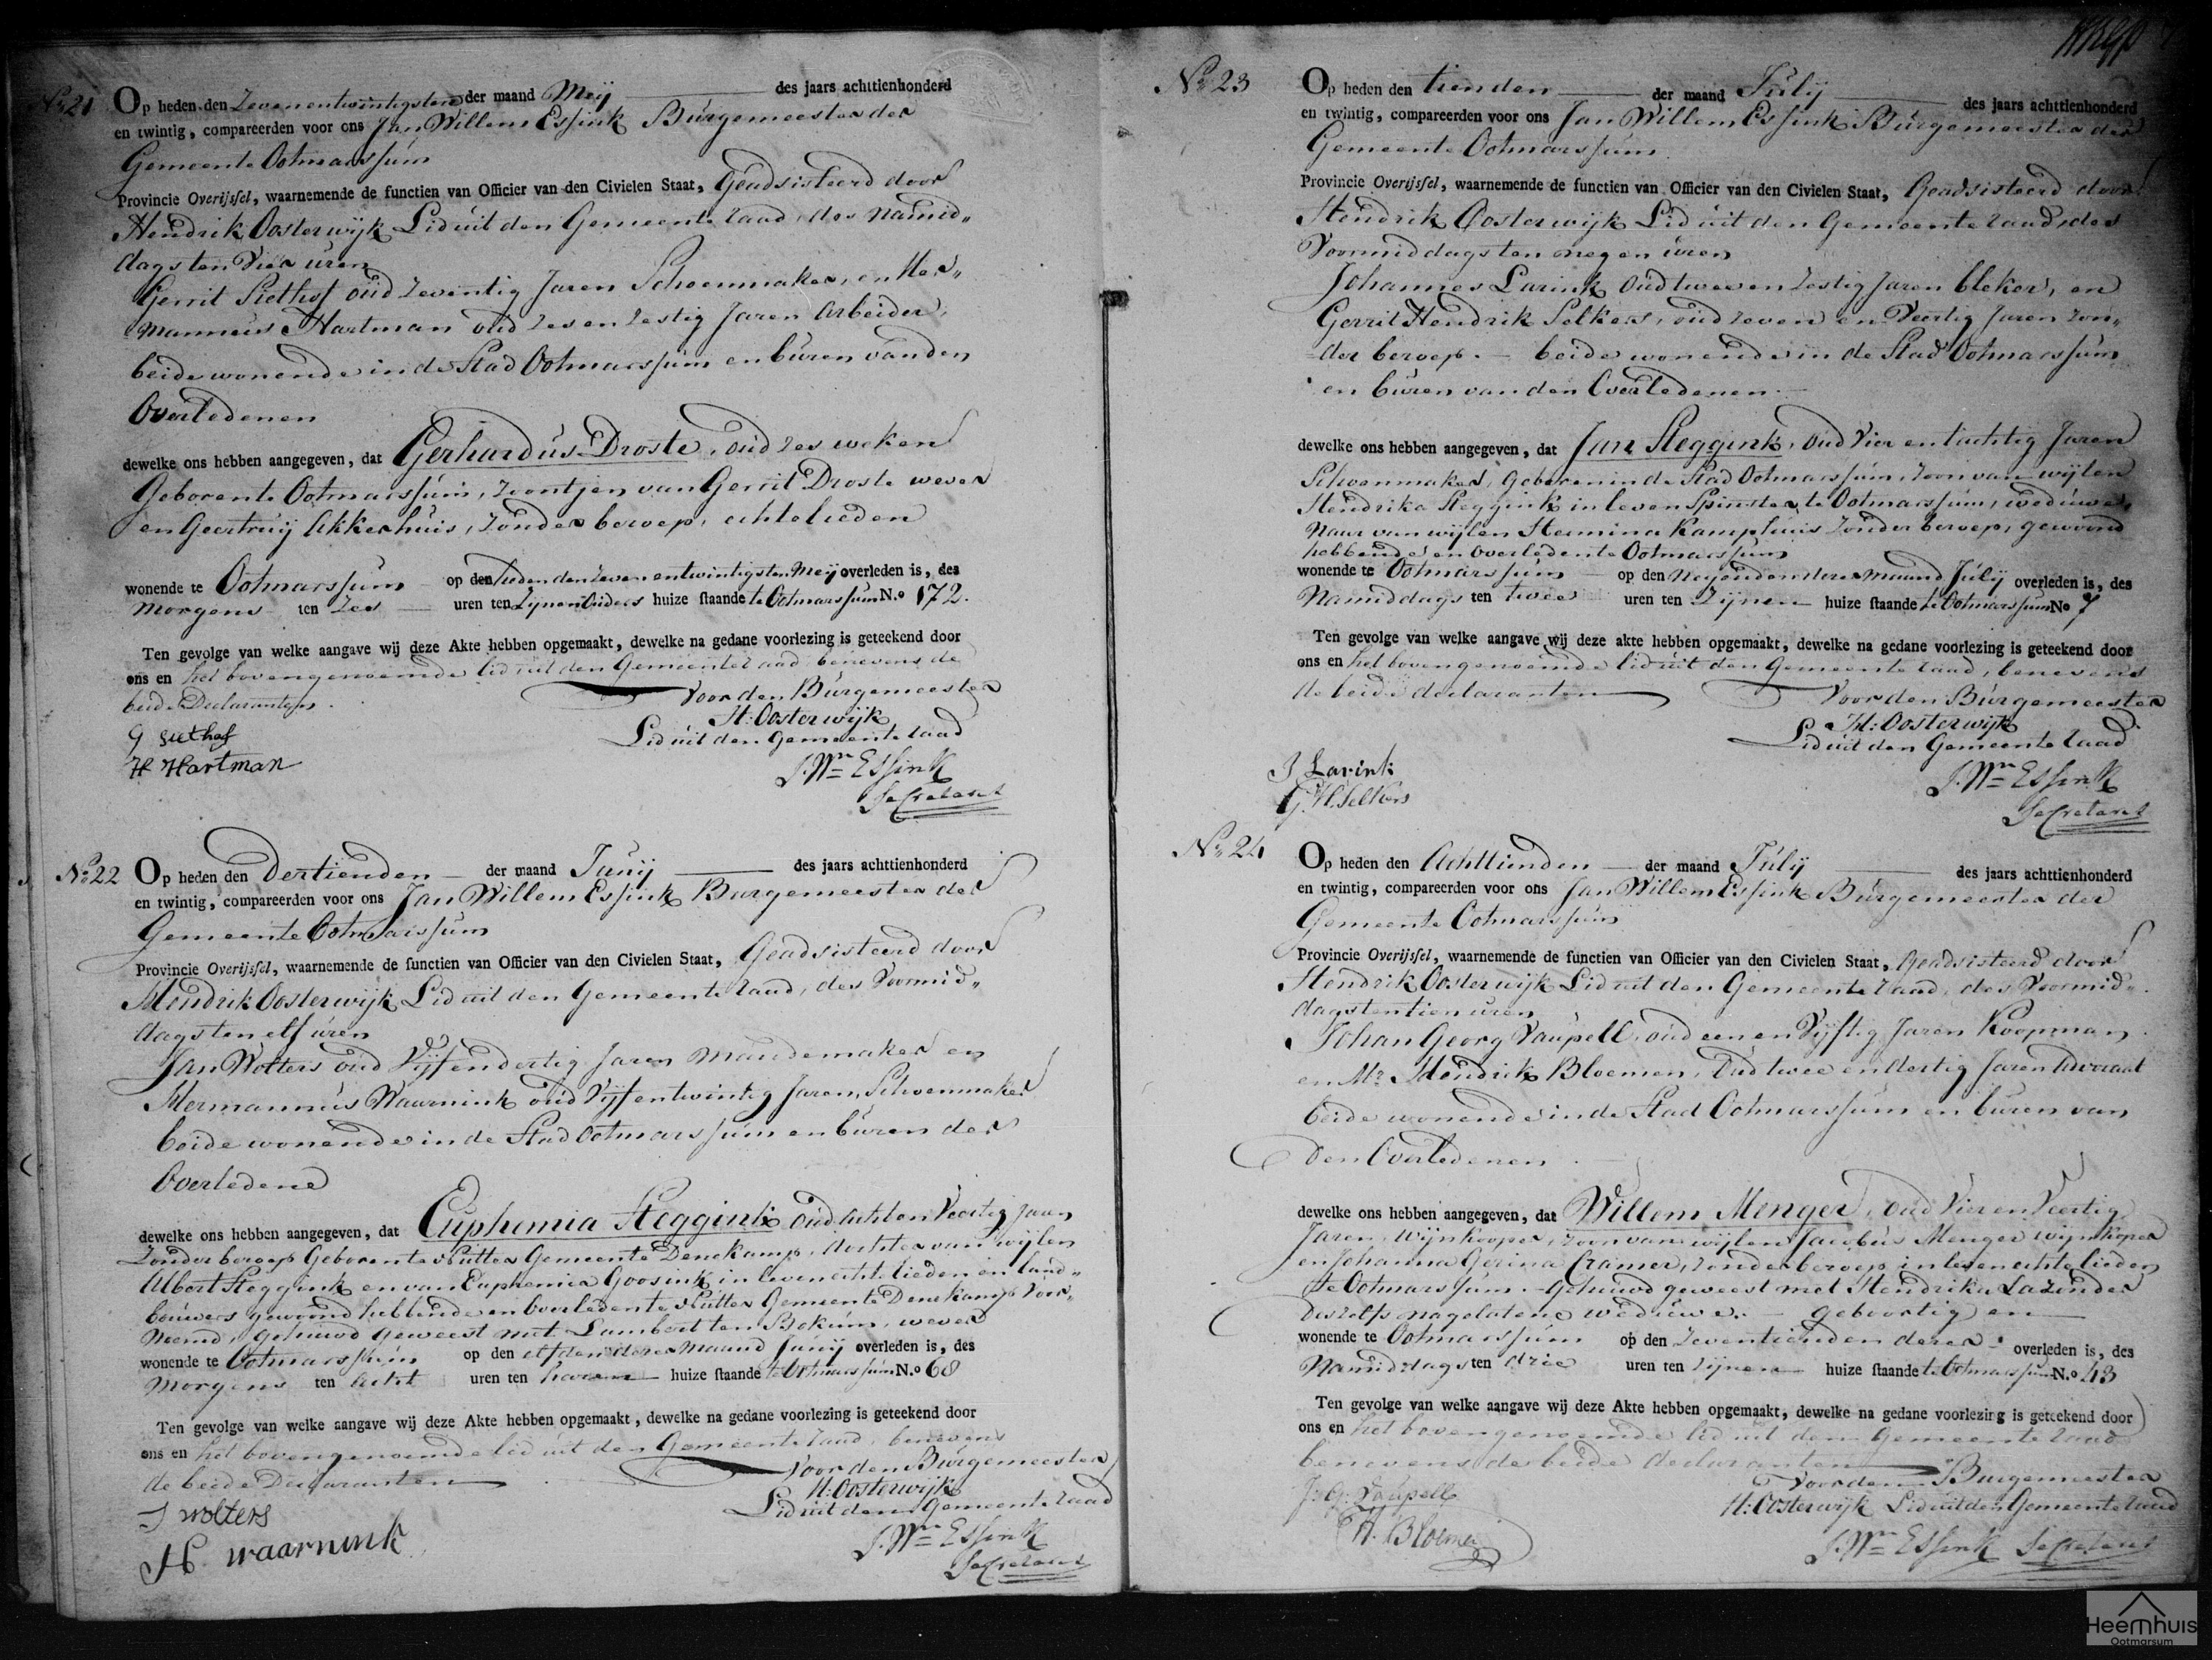 No 21 Op heden den Zevenentwintigsten der maand Meij des jaars achttienhonderd
en twintig, compareerden voor ons Jan Willem Essink Burgemeester der
Gemeente Ootmarssum
Provincie Overijssel, waarnemende de functien van Officier van den Civielen Staat, Geadsisteerd door
Hendrik Oosterwijk Lid uit den Gemeente raad, des Namid„
dags ten Vier uren
Gerrit Siethof oud Zeventig Jaren Schoenmaker, en Her„
mannus Hartman oud Zes en Zestig Jaren Arbeider,
beide wonende in de Stad Ootmarssum en buren van den
Overledenen
dewelke ons hebben aangegeven, dat Gerhardus Droste, oud zes weken
Geboren te Ootmarssum, Zoontjen van Gerrit Droste wever
en Geertruij Akkerhuis, Zonder beroep, echtelieden
wonende te Ootmarssum op den heden den Zeven entwintigsten Meij overleden is, des
Morgens ten Zes uren ten Zijnen Ouders huize staande te Ootmarssum N.o 172.
Ten gevolge van welke aangave wij deze Akte hebben opgemaakt, dewelke na gedane voorlezing is geteekend door
ons en het bovengenoemde lid uit den Gemeente raad benevens de
beide Declaranten.
Voor den Burgemeester
H: Oosterwijk
Lid uit den Gemeente raad
G siethof
H Hartman
J. Wm Essink
Secretaris
No 22 Op heden den Dertienden der maand Junij des jaars achttienhonderd
en twintig, compareerden voor ons Jan Willem Essink Burgemeester der
Gemeente Ootmarssum
Provincie Overijssel, waarnemende de functien van Officier van den Civielen Staat, Geadsisteerd door
Hendrik Oosterwijk Lid uit den Gemeente raad, des Voormid„
dags ten elf uren
Jan Wolters oud Vijf en dertig Jaren Mandemaker en
Hermannus Waarnink oud Vijf en twintig Jaren, Schoenmaker
beide wonende in de Stad Ootmarssum en buren der
Overledene
dewelke ons hebben aangegeven, dat Euphemia Steggink oud Acht en Veertig Jaren
Zonder beroep Geboren te Nutter Gemeente Denekamp, dochter van wijlen
Albert Steggink en van Euphemia Goosink in leven echte lieden en land„
bouwers gewoond hebbende en overleden te Nutter Gemeente Denekamp Voor„
noemd, gehuwd geweest met Lambert ten Bokum, wever
wonende te Ootmarssum op den elfden dezer Maand Junij overleden is, des
Morgens ten Acht uren ten haren huize staande te Ootmarssum N.o 68
Ten gevolge van welke aangave wij deze Akte hebben opgemaakt, dewelke na gedane voorlezing is geteekend door
ons en het bovengenoemde lid uit den Gemeente raad, benevens
de beide Declaranten
Voor den Burgemeester
H: Oosterwijk
Lid uit den Gemeente raad
J wolters
H. waarnink
J. Wm Essink
Secretaris
No 23 Op heden den tienden der maand Julij des jaars achttienhonderd
en twintig, compareerden voor ons Jan Willem Essink Burgemeester der
Gemeente Ootmarssum
Provincie Overijssel, waarnemende de functien van Officier van den Civielen Staat, Geadsisteerd door
Hendrik Oosterwijk Lid uit den Gemeente raad, des
Voormiddags ten negen uren
Johannes Larink oud twee en zestig Jaren bleker, en
Gerrit Hendrik Selkers, oud zeven en Veertig Jaren zon„
der beroep. beide wonende in de Stad Ootmarssum
en buren van den Overledenen
dewelke ons hebben aangegeven, dat Jan Steggink, oud Vier en tachtig Jaren
Schoenmaker, Geboren in de Stad Ootmarssum, zoon van wijlen
Hendrika Steggink in leven Spinster te Ootmarssum, weduwe„
naar van wijlen Hermina Kamphuis zonder beroep, gewoond
hebbende en overleden te Ootmarssum
wonende te Ootmarssum op den Negenden dezer maand Julij overleden is, des
Namiddags ten twee uren ten Zijnen huize staande te Ootmarssum No 7
Ten gevolge van welke aangave wij deze akte hebben opgemaakt, dewelke na gedane voorlezing is geteekend door
ons en het bovengenoemde lid uit den Gemeente raad, benevens
de beide declaranten
Voor den Burgemeester
H: Oosterwijk
Lid uit den Gemeente raad
J Larink
G. H. Selkers
J. Wm Essink
Secretaris
No 24 Op heden den Achttienden der maand Julij des jaars achttienhonderd
en twintig, compareerden voor ons Jan Willem Essink Burgemeester der
Gemeente Ootmarssum
Provincie Overijssel, waarnemende de functien van Officier van den Civielen Staat, Geadsisteerd door
Hendrik Oosterwijk Lid uit den Gemeente raad, des Voormid„
dags ten tien uren
Johan Georg Vaupell, oud een en Vijftig Jaren Koopman
en Mr Hendrik Bloemen, Oud twee en dertig Jaren Advocaat
beide wonende in de Stad Ootmarssum en buren van
den Overledenen
dewelke ons hebben aangegeven, dat Willem Menger, oud Vier en Veertig
Jaren, Wijnkooper, zoon van wijlen Jacobus Menger wijnkoper
en Johanna Gesina Cramer, zonder beroep in leven echtelieden
te Ootmarssum. Gehuwd geweest met Hendrika Lazonder
deszelfs nagelatene weduwe. geboortig en
wonende te Ootmarssum op den Zeventienden dezer overleden is, des
Namiddags ten drie uren ten zijnen huize staande te Ootmarssum N.o 43
Ten gevolge van welke aangave wij deze Akte hebben opgemaakt, dewelke na gedane voorlezing is geteekend door
ons en het bovengenoemde lid uit den Gemeente raad
benevens de beide declaranten
Voor den Burgemeester
H: Oosterwijk Lid uit den Gemeente raad
J. G. Vaupell
H. Bloemen
J. Wm Essink Secretaris
Heemhuis
Ootmarsum